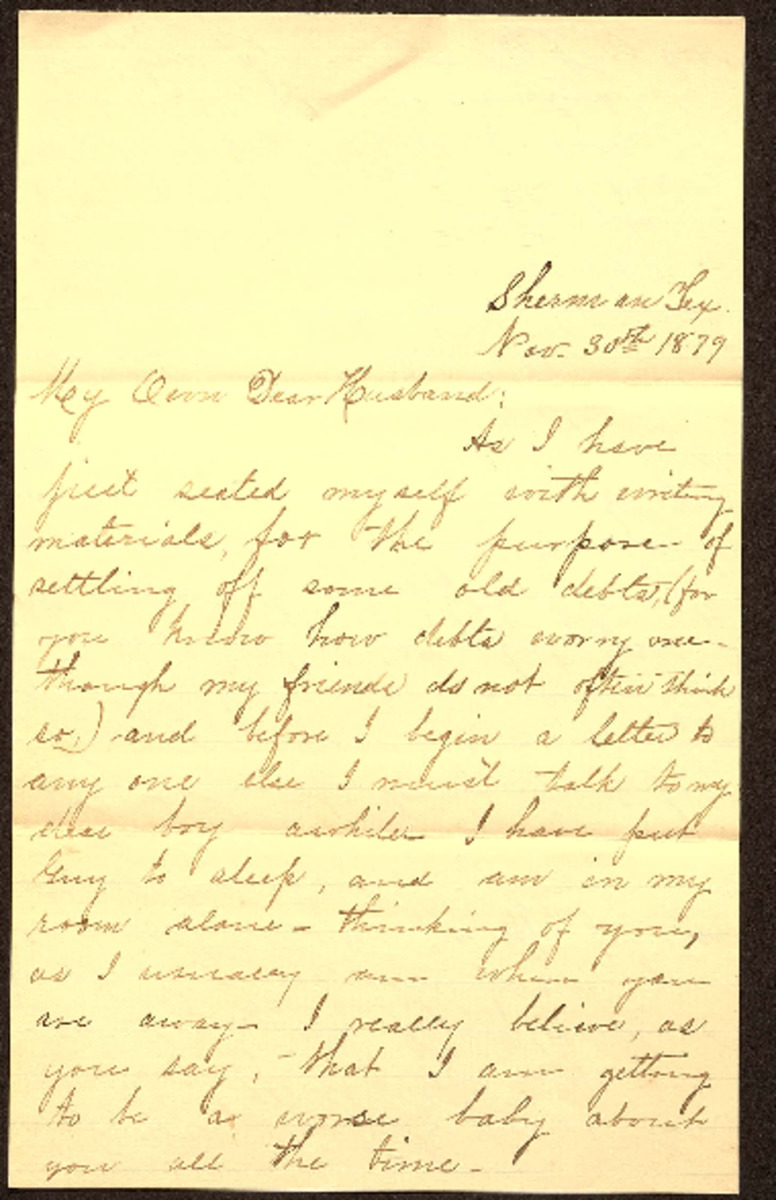 Sherman Tex.
Nov. 30th 1879
My Own Dear Husband:
As I have
just seated myself with writing
materials, for the purpose of
settling off some old debts, (for
you know how debts worry one -
though my friends do not often think
so,) and before I begin a letter to
any one else I must talk to my
dear boy awhile. I have put
Guy to sleep, and am in my
room alone - thinking of you,
as I usually am when you
are away - I really believe, as
you say, that I am getting
to be a worse baby about
you all the time -